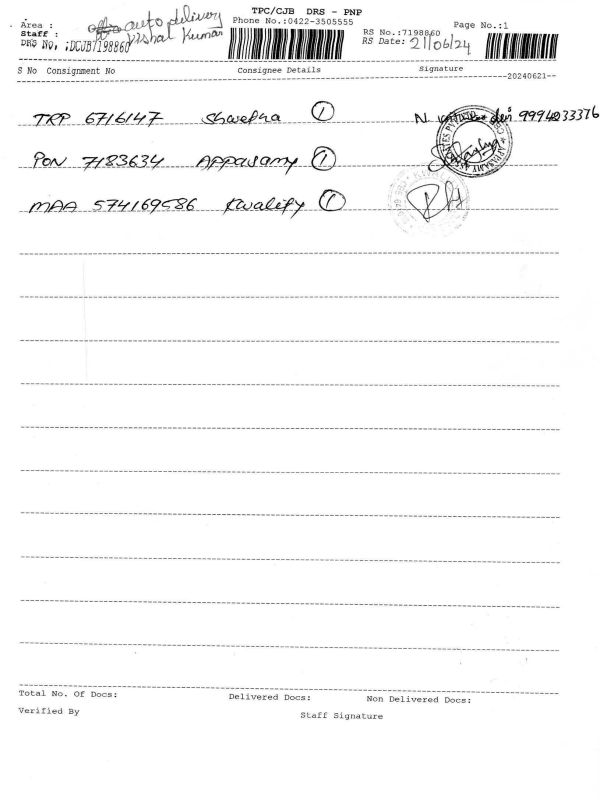 TPC/CJB DRS - PNP
Area : auto delivery
Phone No.:0422-3505555
Page No.:1
Staff : Vishal Kumar
RS No.:7198860
DRS No, :DCJB7198860
RS Date: 21/06/24
S No Consignment No Consignee Details Signature
--20240621--
TRP 6716147 Shwetha ① N dei 9994033376
PON 7183634 Appasamy ①
MAA 574169586 Kwality ①
Total No. Of Docs: Delivered Docs: Non Delivered Docs:
Verified By
Staff Signature